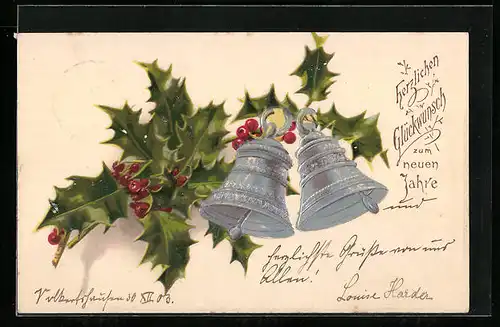 Herzlichen
Glückwunsch
zum
neuen
Jahre
und
herzlichste Grüße von uns
Allen!
Louise Harder
Volkertshausen 30 XII 03.